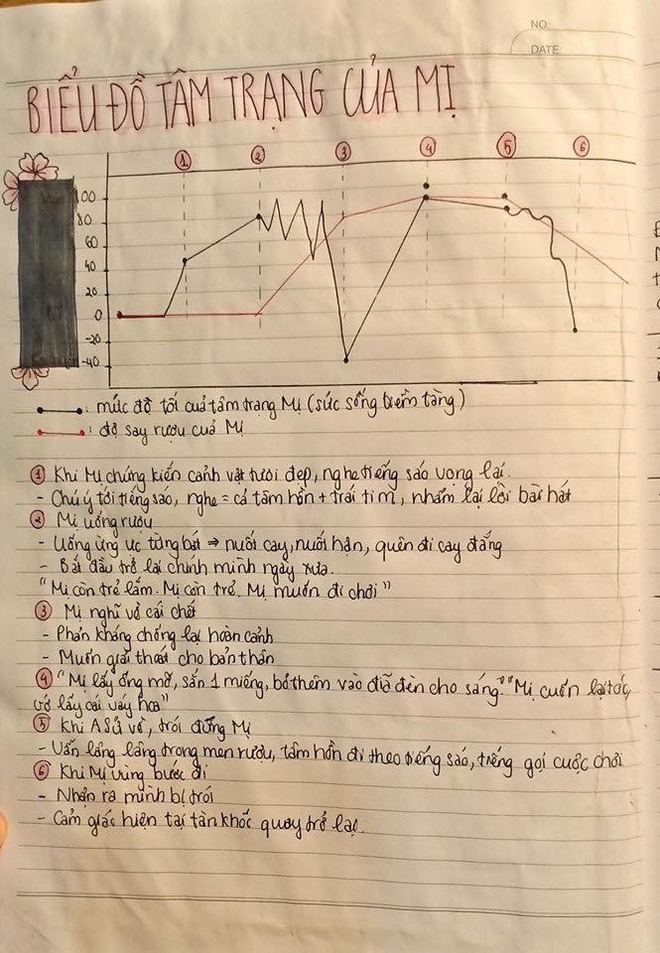 NO:
DATE:
BIỂU ĐỒ TÂM TRẠNG CỦA MỊ
1 2 3 4 5 6
100
80
60
40
20
0
-20
-40
: mức độ tối của tâm trạng Mị (sức sống tiềm tàng)
: độ say rượu của Mị
1 Khi Mị chứng kiến cảnh vật tươi đẹp, nghe tiếng sáo vọng lại.
- Chú ý tới tiếng sáo, nghe = cả tâm hồn + trái tim, nhẩm lại lời bài hát
2 Mị uống rượu
- Uống ừng ực từng bát ⇒ nuốt cay, nuốt hận, quên đi cay đắng
- Bắt đầu trở lại chính mình ngày xưa.
"Mị còn trẻ lắm. Mị còn trẻ. Mị muốn đi chơi"
3 Mị nghĩ về cái chết
- Phản kháng chống lại hoàn cảnh
- Muốn giải thoát cho bản thân
4 "Mị lấy ống mỡ, sắn 1 miếng, bỏ thêm vào đĩa đèn cho sáng" "Mị cuốn lại tóc,
vớ lấy cái váy hoa"
5 Khi A Sử về, trói đứng Mị
- Vẫn lâng lâng trong men rượu, tâm hồn đi theo tiếng sáo, tiếng gọi cuộc chơi
6 Khi Mị vùng bước đi
- Nhận ra mình bị trói
- Cảm giác hiện tại tàn khốc quay trở lại.